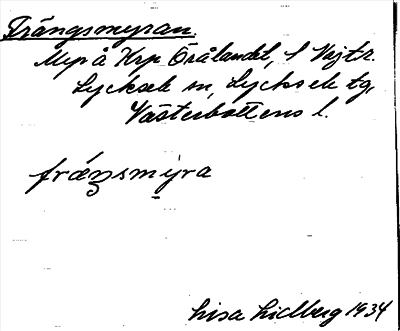 Trångsmyran.
Myr å Krp Örålandet, l Vajtr.
Lycksele sn, Lycksele tg,
Västerbottens l.
fráŋsmỳra
Lisa Lidberg 1934